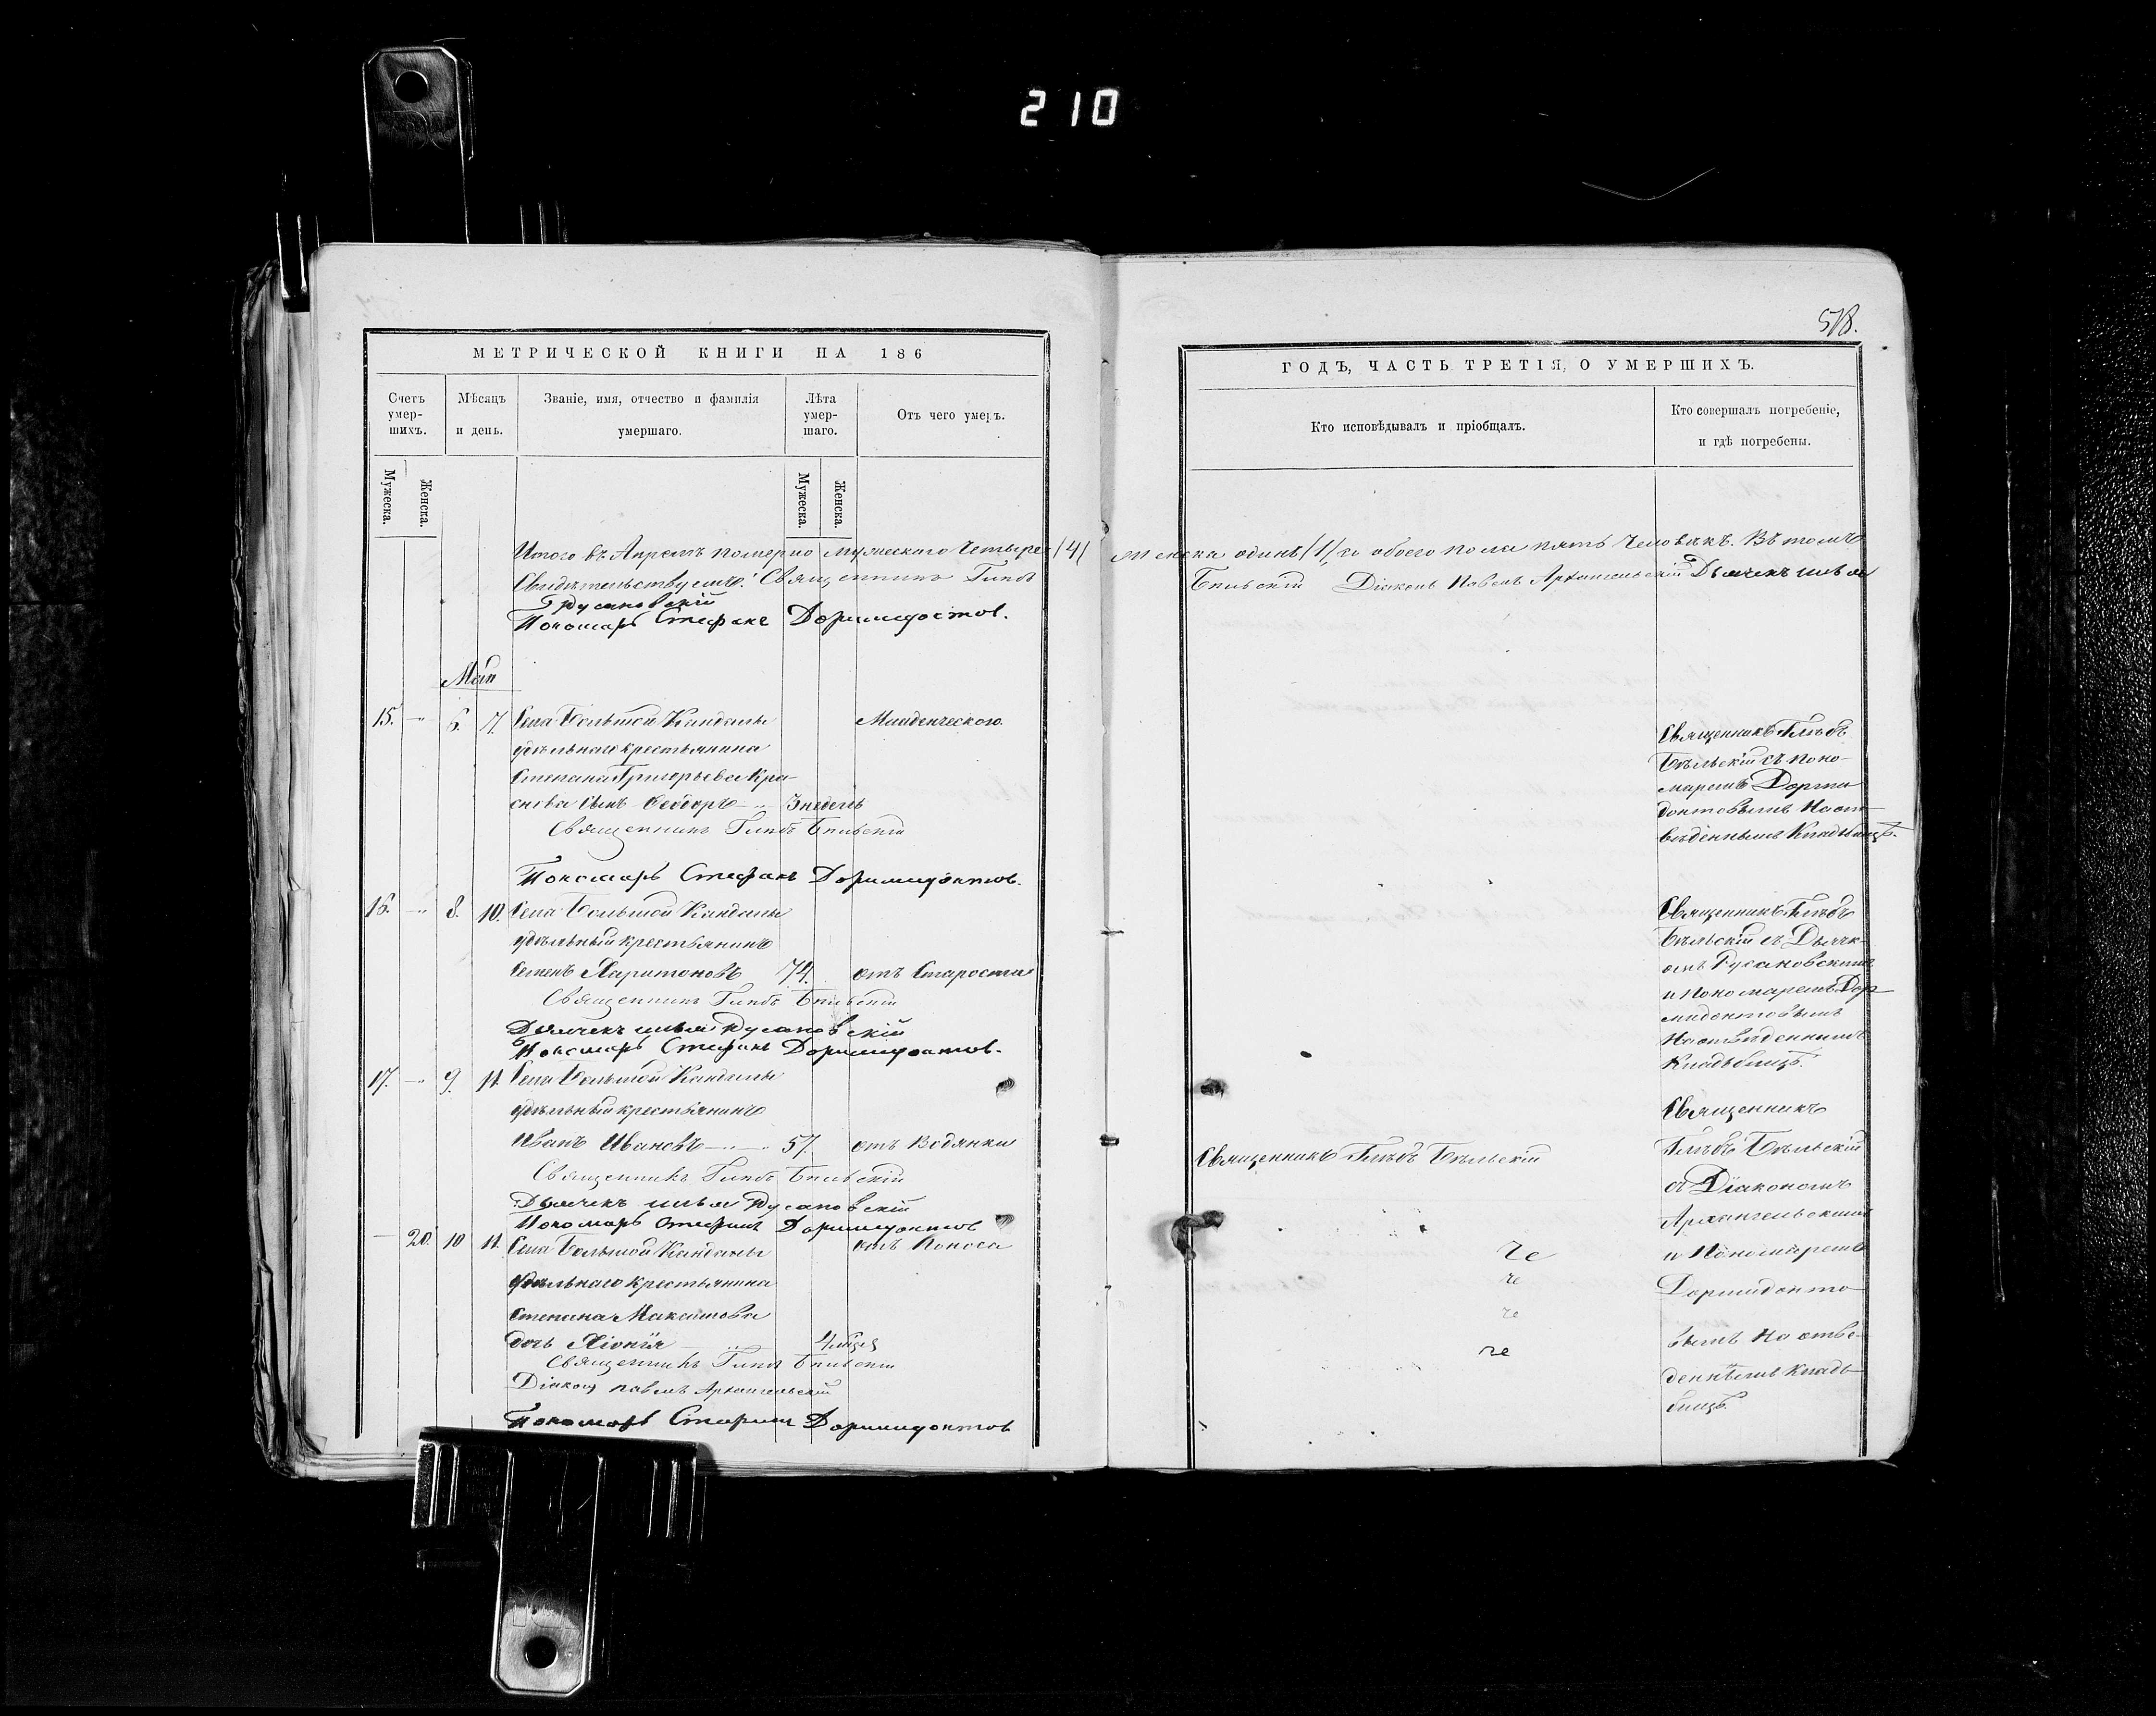 210
518.
МЕТРИЧЕСКОЙ КНИГИ НА 186
Счетъ умер-шихъ.
Мѣсяцъ и день.
Званіе, имя, отчество и фамилія умершаго.
Лѣта умер-шаго.
Отъ чего умеръ.
Мужеска.
Женска.
Мужеска.
Женска.
Итого въ Апрѣлѣ померло мужескаго четыре (4)
Свидѣтельствуемъ: Священникъ Глѣбъ
Русановскій
Пономарь Стефанъ Доримедонтов.
Май
15. - „ 6. 7. Села Большой Кандалы Младенческою.
удѣльнаго крестьянина
Степана Григорьева Кра-
снова сынъ Ѳеодоръ - „ 3 недель
Священникъ Глѣбъ Бѣльскій
Пономарь Стефанъ Доримидонтов.
16. - „ 8. 10. Села Большой Кандалы
удѣльный крестьянинъ
Семенъ Харитоновъ 74. отъ Старости
Священникъ Глѣбъ Бѣльскій
Дьячекъ Илья Русановскій
Пономарь Стефанъ Доримидонтов.
17. - „ 9. 11. Села Большой Кандалы
удѣльный крестьянинъ
Иванъ Ивановъ - „ - 57. отъ Водянки
Священникъ Глѣбъ Бѣльскій
Дьячекъ Илья Русановскій
Пономарь Стефанъ Доримидонтов
- 20. 10 11. Села Большой Кандалы отъ Поноса
удѣльнаго крестьянина
Степана Максимова
дочь Хіонія 4 мѣся
Священникъ Глѣбъ Бѣльскій
Діаконъ Павелъ Архангельскій
Пономарь Стефанъ Доримидонтов
ГОДЪ, ЧАСТЬ ТРЕТІЯ, О УМЕРШИХЪ.
Кто исповѣдывалъ и пріобщалъ.
Кто совершалъ погребеніе, и гдѣ погребены.
женска одинъ (1), обоего пола пять человѣкъ. Въ томъ
Бѣльскій Діаконъ Павелъ Архангельскій Дьячекъ Илья
Священникъ Глѣбъ
Бѣльскій съ поно-
маремъ Дорми
донтовымъ На от-
вѣденнымъ Кладбищѣ.
Священникъ Глѣбъ
Бѣльскій съ Дьячк-
омъ Русановскимъ
и пономаремъ Дор-
мидонтовымъ
На отвѣденнымъ
Кладбищѣ.
Священникъ Глѣбъ Бѣльскій
Священникъ
Глѣбъ Бѣльскій
съ Діакономъ
Архангельскимъ
и Пономаремъ
Дормидонто
вымъ На отве-
деннымъ Клад-
бищѣ.